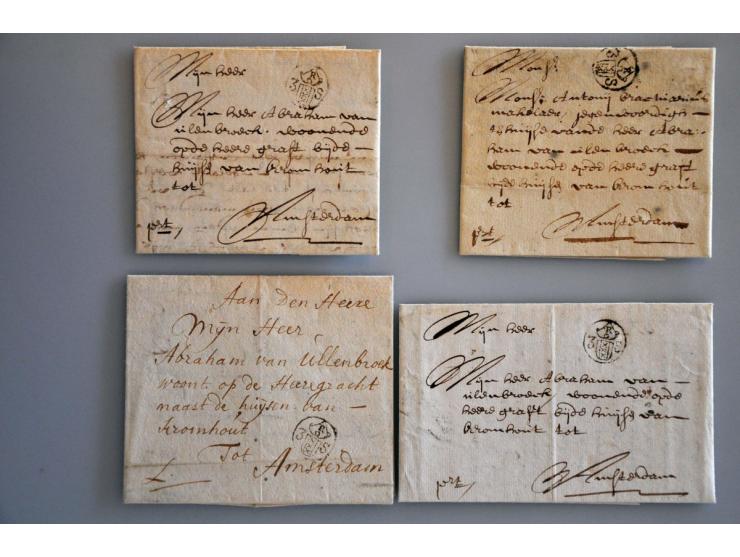 Mijn heer
Mijn heer Abraham van
uilenbroeck. woonende
opde heere graft bijde
huijse van kromhout
tot
Amsterdam
port
Monsr.
Monsr. Antonij
makelaer, jegenwoordigh
huijse vande heer Abra:
ham van uilenbroeck
woonende opde heere graft
bijde huijse van kromhout
tot
Amsterdam
port
Aan Den Heere
Mijn Heer
Abraham van Ullenbroek
woont op de Heeregracht
naast de huijsen van
Kromhout
Tot
Amsterdam
Mijn heer
Mijn heer Abraham van
uilenbroeck woonende opde
heere graft bijde huijse van
kromhout tot
Amsterdam
port